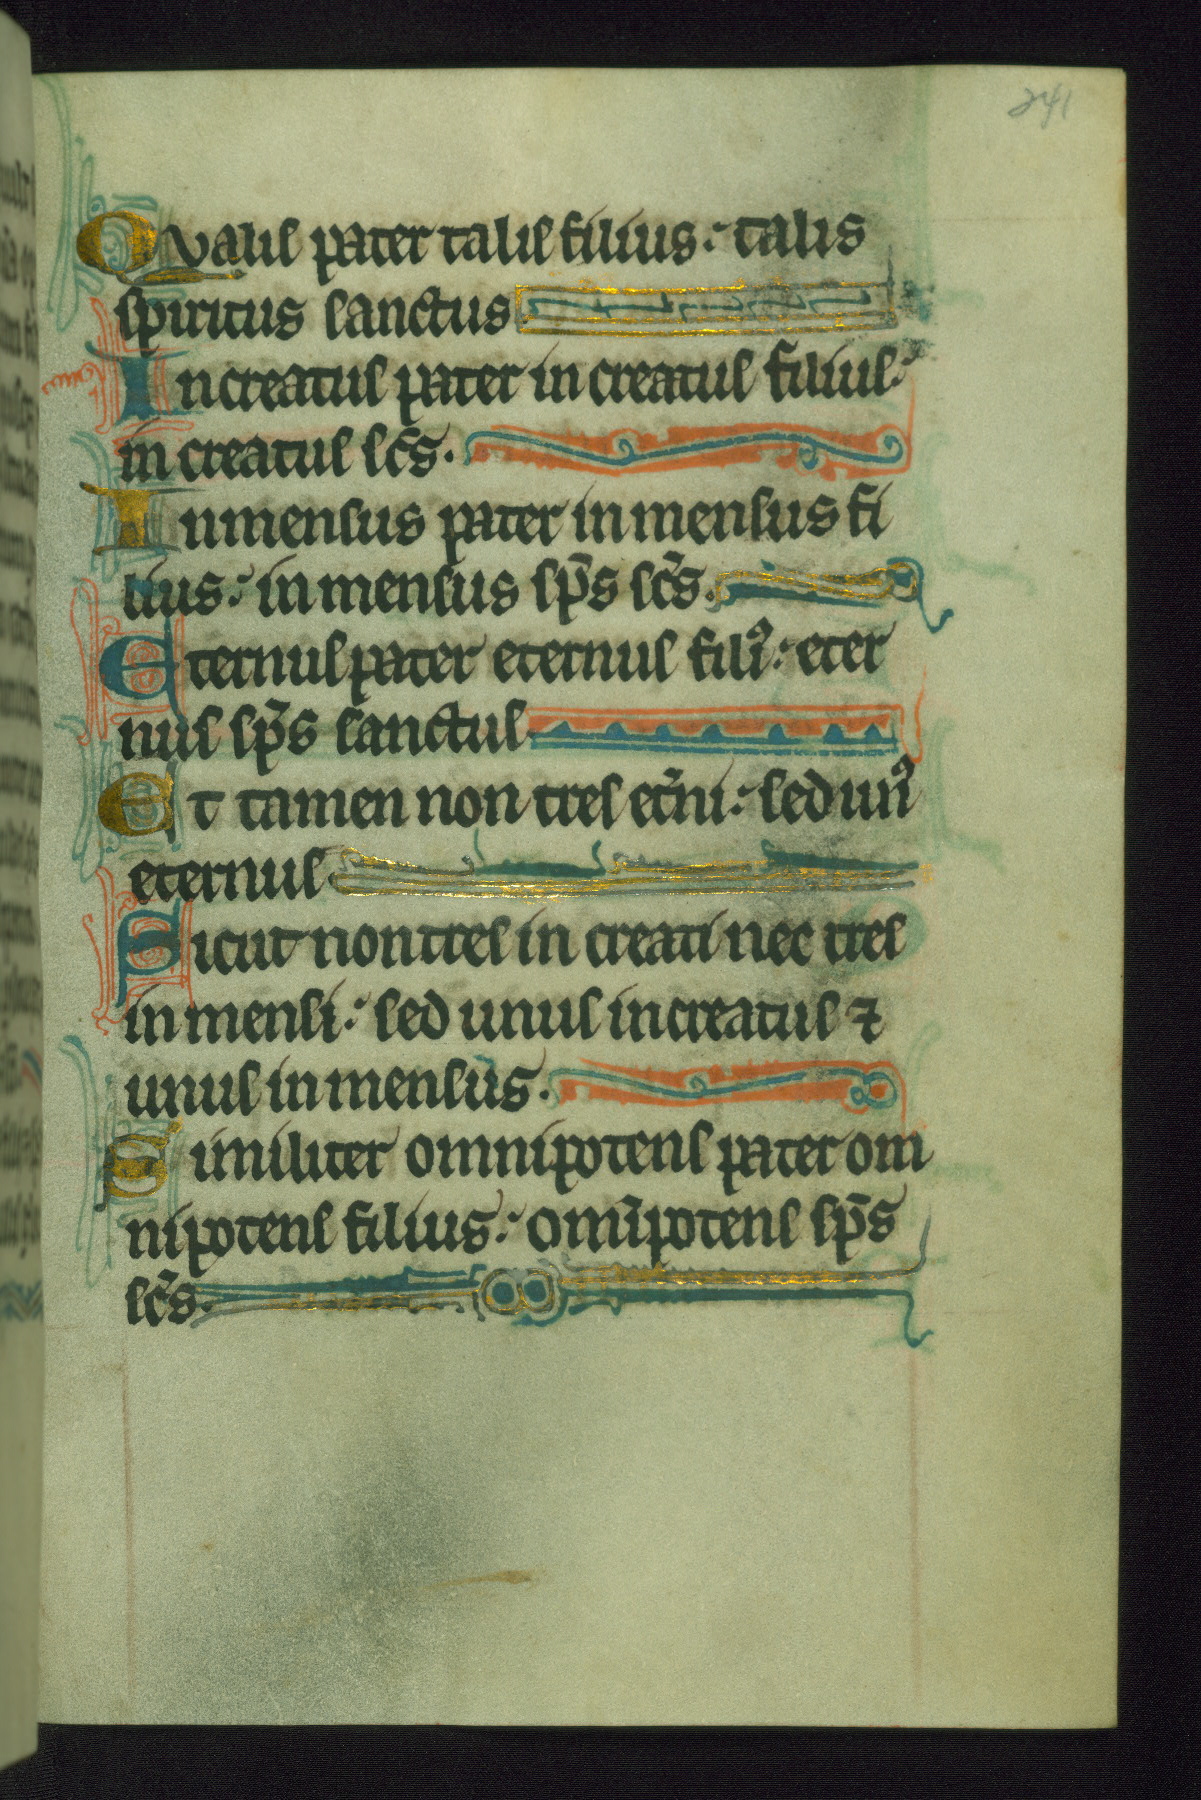 241
Qualis pater talis filius: talis
spiritus sanctus
Increatus pater in creatus filius:
in creatus sc̄s.
Inmensus pater in mensus fi
lius: in mensus sp̄s sc̄s.
Eternus pater eternus filiꝰ: eter
nus sp̄s sanctus
Et tamen non tres et̾ni: sed unꝰ
eternus
Sicut non tres in creati nec tres
in mensi: sed unus increatus ⁊
unus in mensus.
Similiter omnipotens pater om
nipotens filius: omīpotens sp̄s
sc̄s.